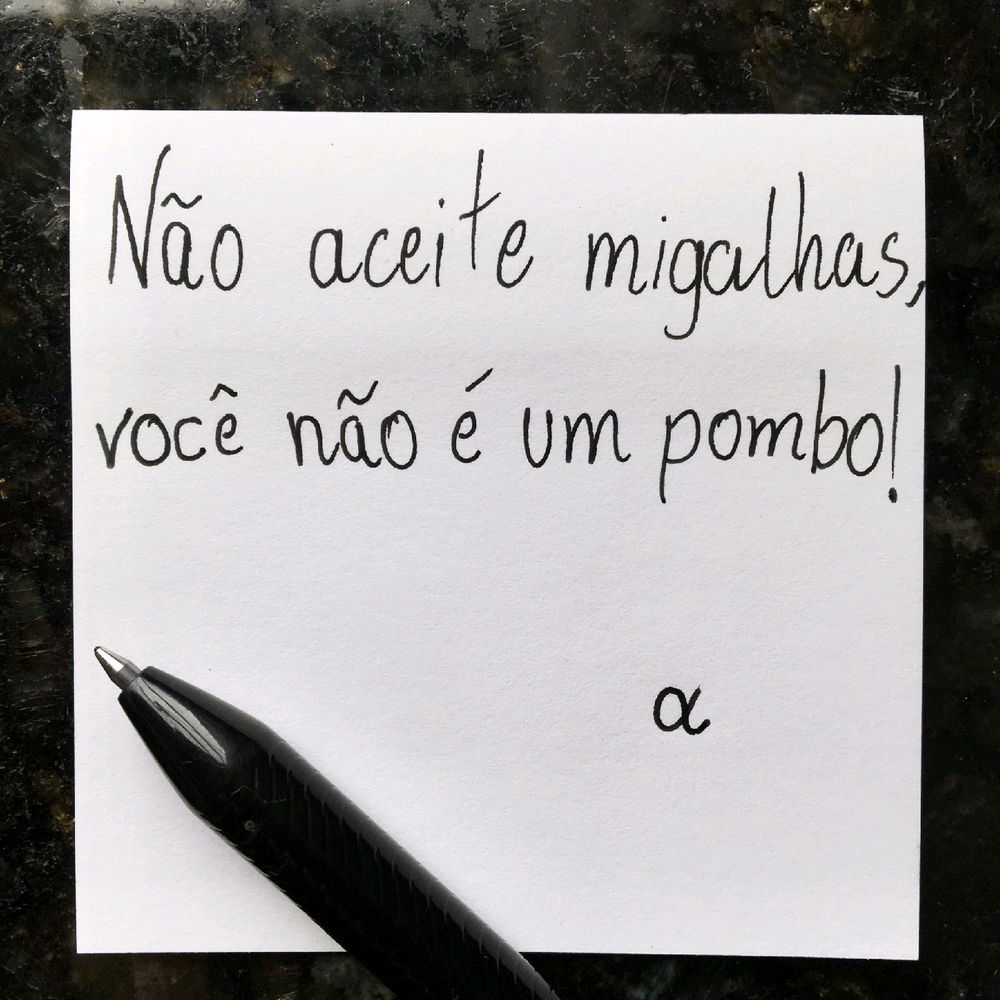 Não aceite migalhas,
você não é um pombo!
α